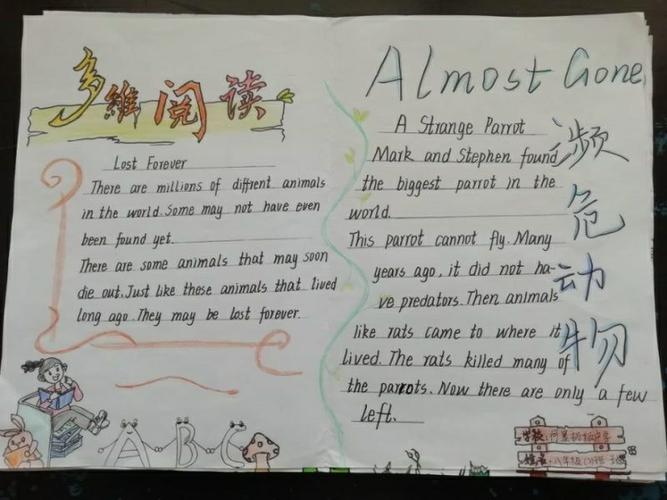 多維阅读
Lost Forever
There are millions of diffrent animals
in the world. Some may not have even
been found yet.
There are some animals that may soon
die out. Just like these animals that lived
long ago. They may be lost forever.
ABC
Almost Gone
濒危动物
A Strange Parrot
Mark and Stephen found
the biggest parrot in the
world.
This parrot cannot fly. Many
years ago, it did not ha-
ve predators. Then animals
like rats came to where it
lived. The rats killed many of
the parrots. Now there are only a few
left.
学校:
姓名: 八年级